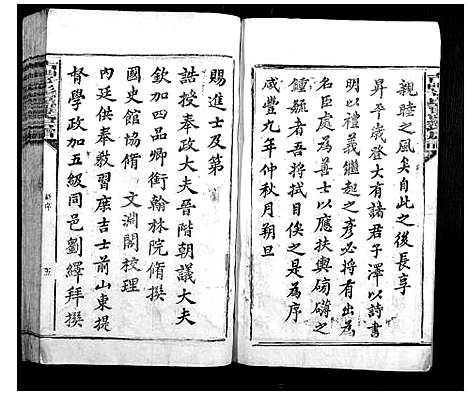 親睦之風矣自此之後長享
昇平歲登大有諸君子澤以詩書
明以禮義繼起之彥必將有出為
名臣處為善士以應扶輿磅礴之
鍾毓者吾將拭目俟之是為序
咸豐九年仲秋月朔旦
賜進士及第
誥授奉政大夫晉階朝議大夫
欽加四品卿銜翰林院脩撰
國史館協脩文淵閣校理
內廷供奉教習庶吉士前山東提
督學政加五級同邑劉繹拜撰
序
五